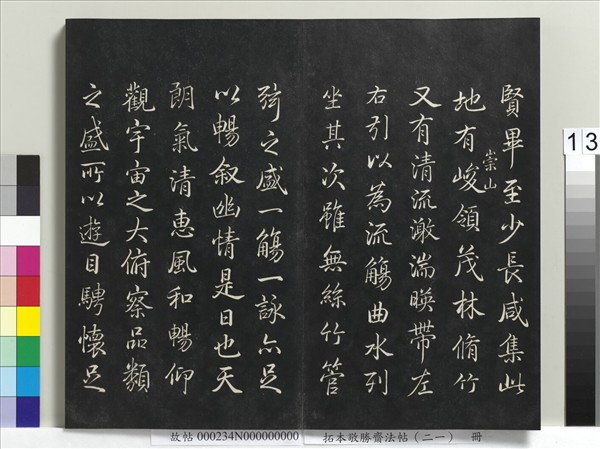 賢畢至少長咸集此
地有崇山峻領茂林脩竹
又有清流激湍暎帶左
右引以為流觴曲水列
坐其次雖無絲竹管
弦之盛一觴一詠亦足
以暢敘幽情是日也天
朗氣清惠風和暢仰
觀宇宙之大俯察品類
之盛所以遊目騁懷足
故帖 000234N000000000 拓本敬勝齋法帖(二一) 冊
13